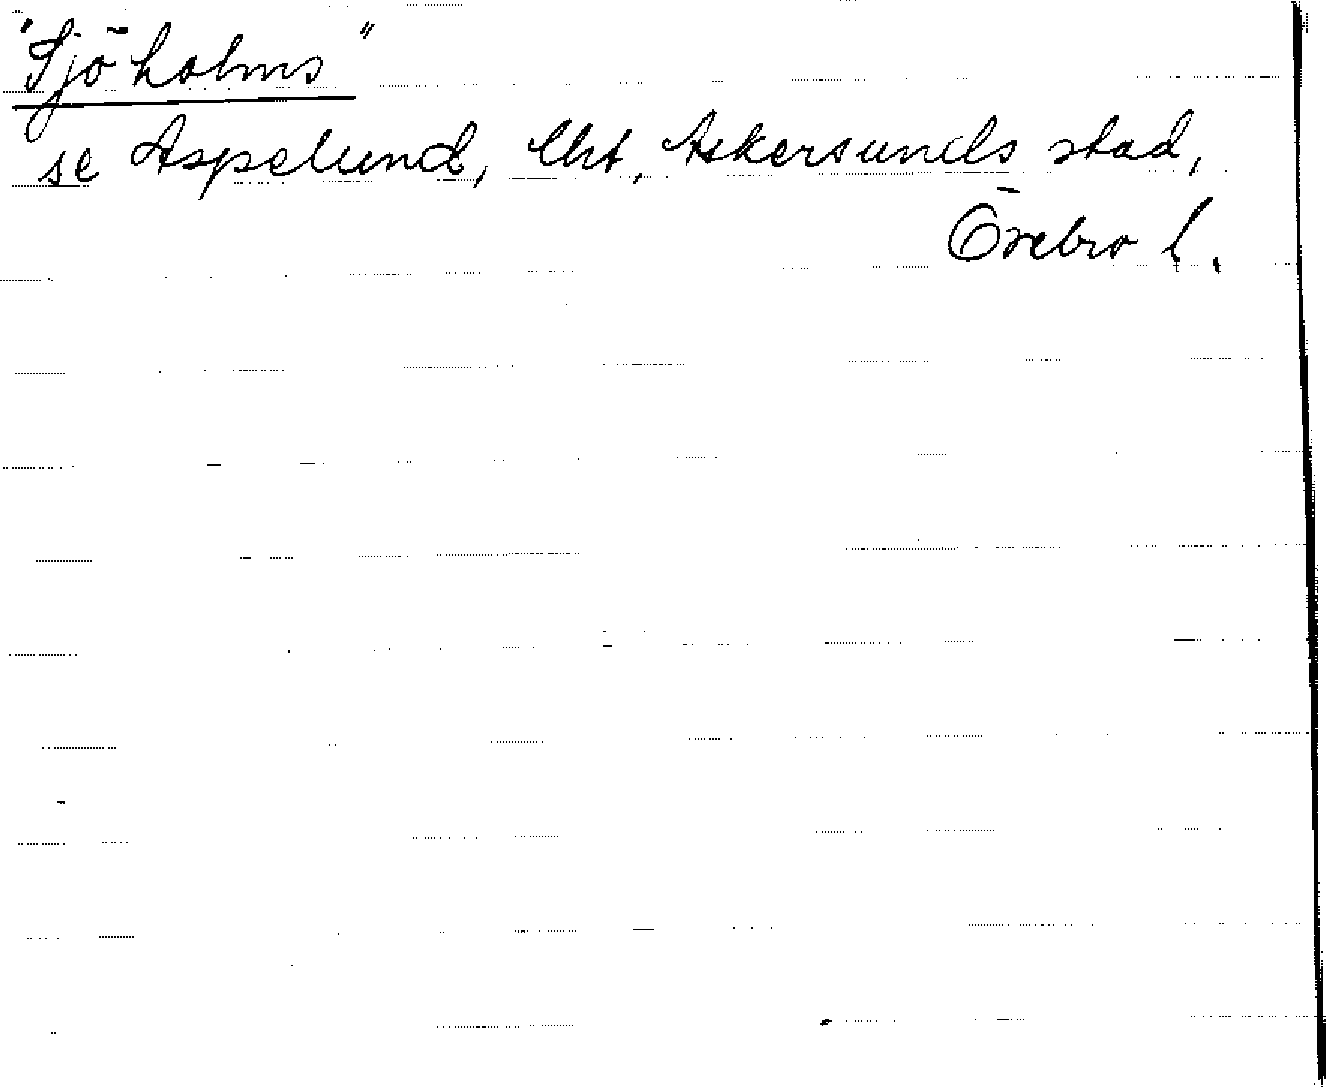 "Sjöholms"
se Aspelund, lht, Askersunds stad,
Örebro l.